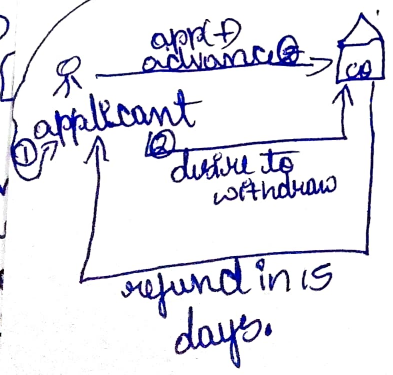 app(+)
advance
co
applicant
①
②
desire to
withdraw
refund in 15
days.